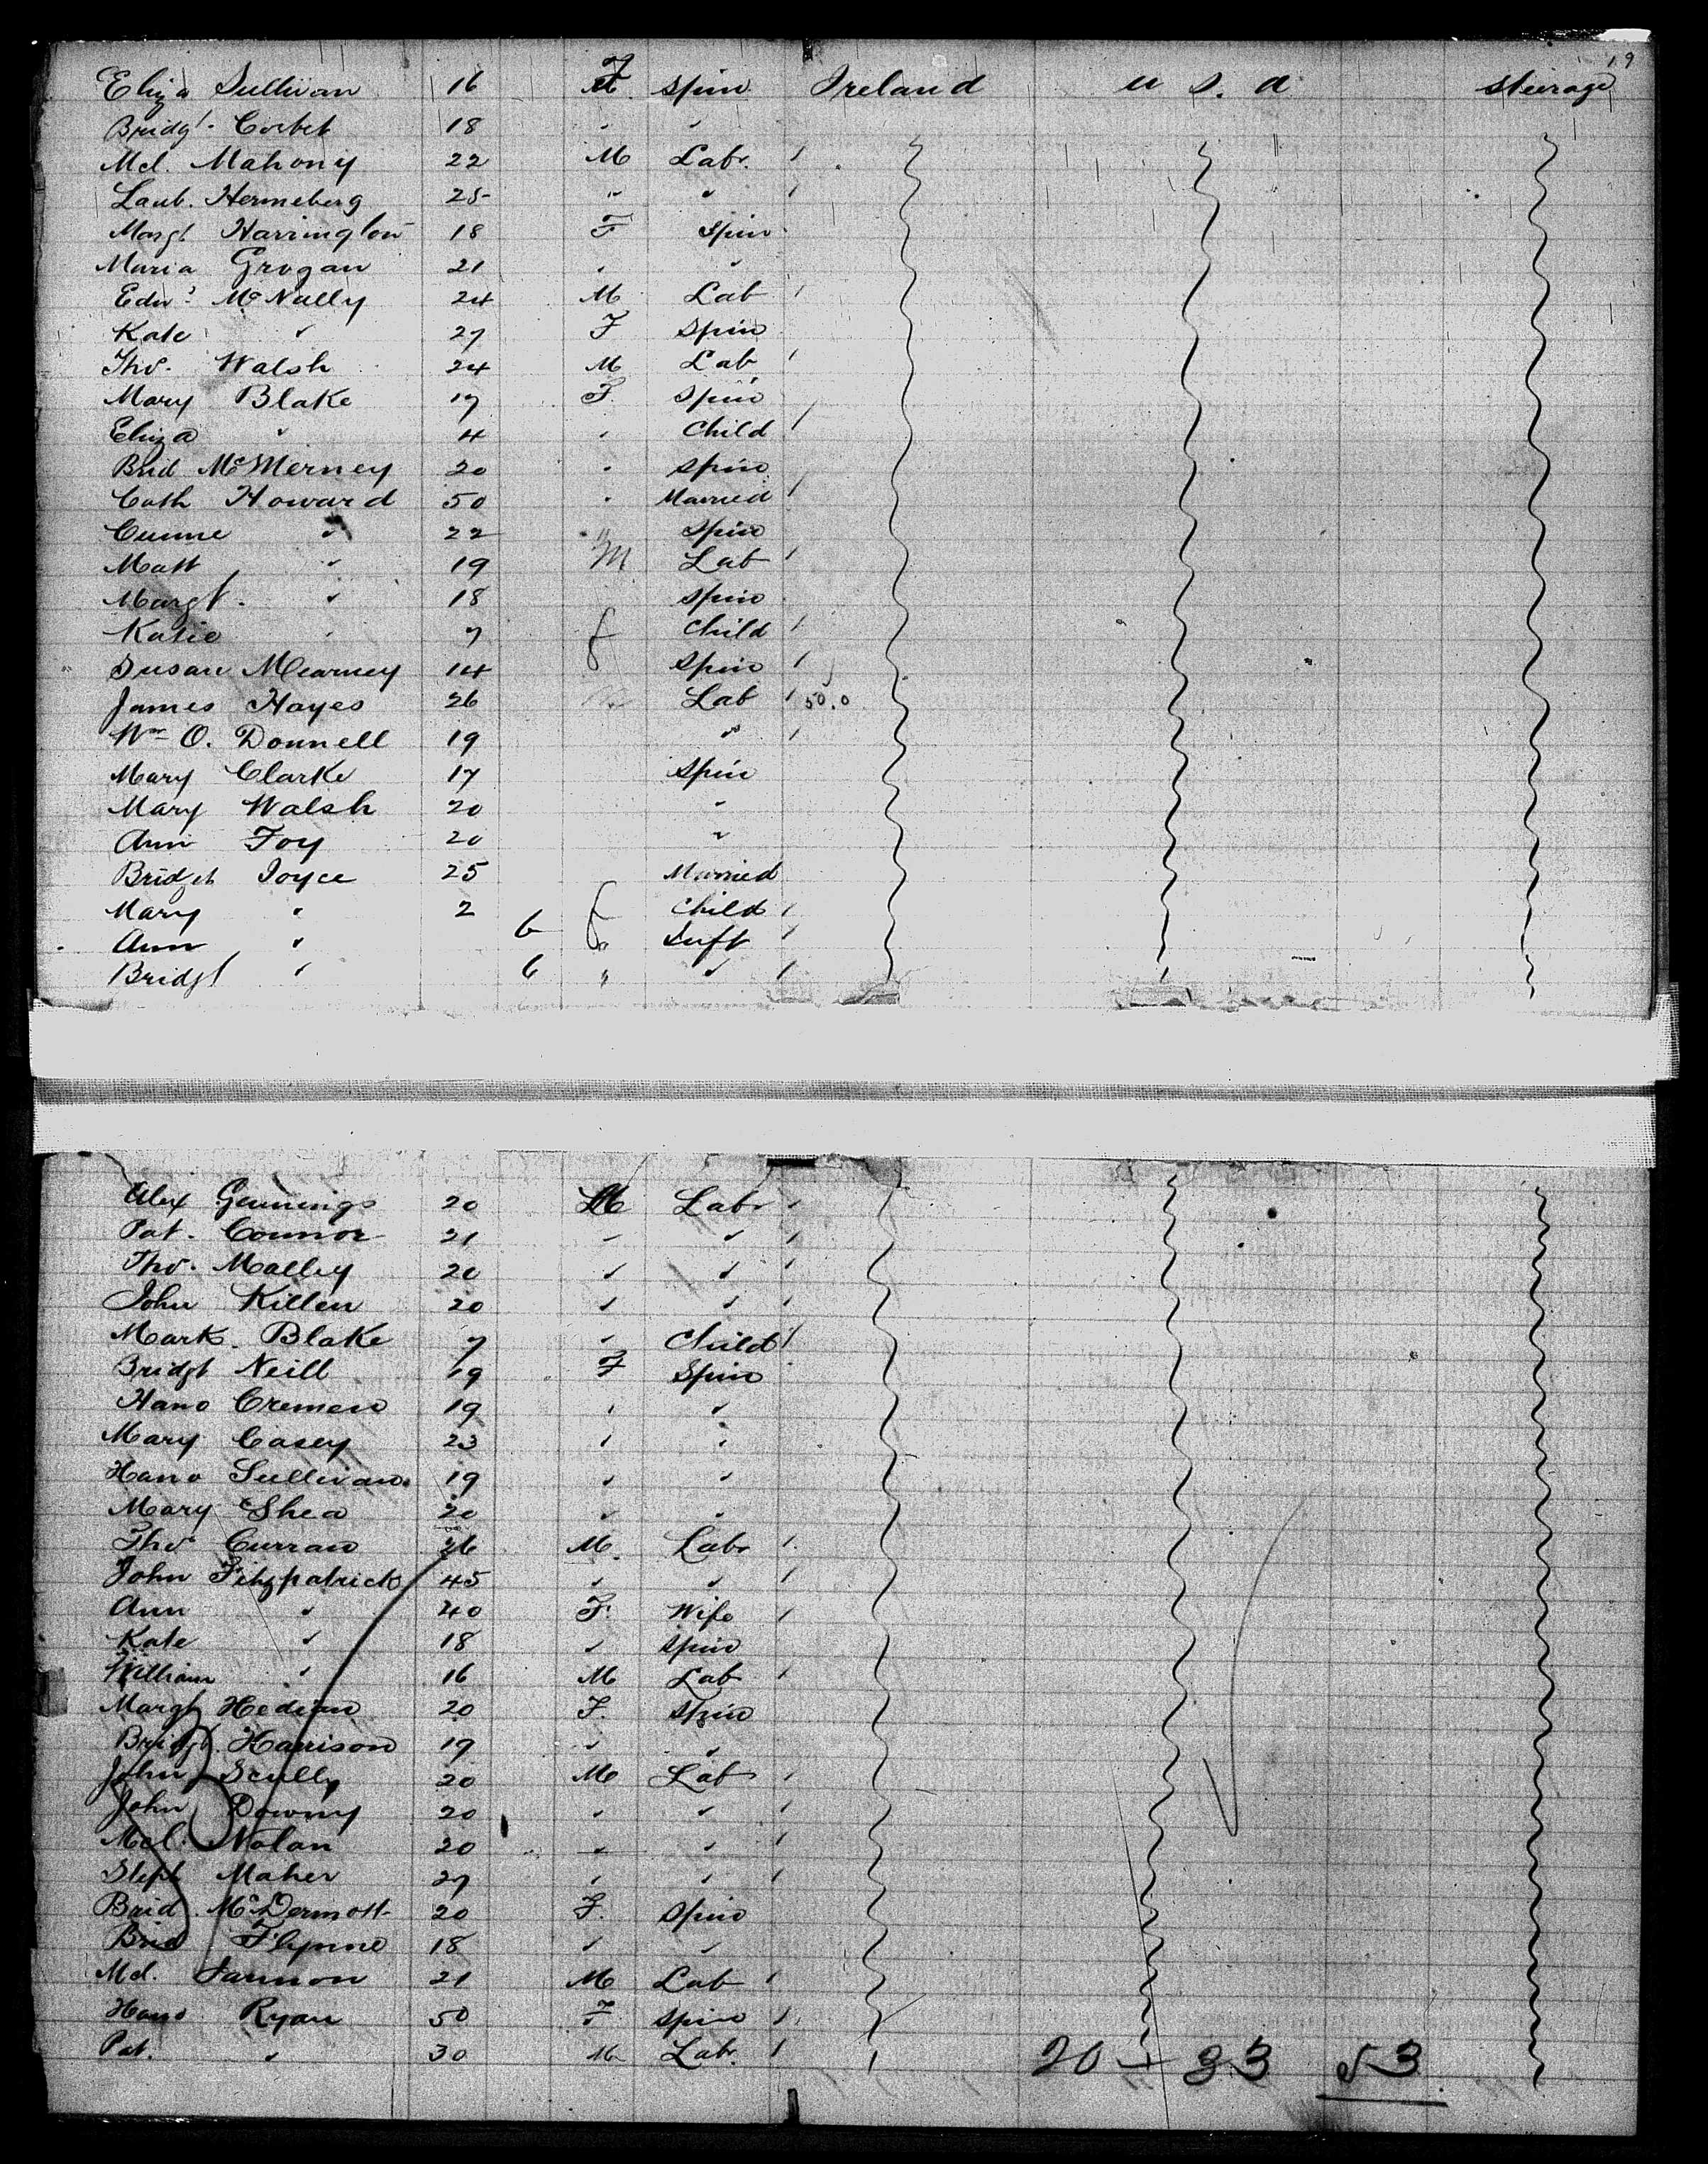 19
Eliza Sullivan 16 F spin Ireland U S. A steerage
Bridgt. Corbet 18 " "
Ml. Mahony 22 M Labr.
Laub. Henneberg 25 " "
Margt Harrington 18 F Spin
Maria Grogan 21 " "
Edwd McNally 24 M Lab
Kate " 27 F Spin
Thos. Walsh 24 M Lab
Mary Blake 17 F Spin
Eliza " 4 " Child
Brid McMerney 20 " spin
Cath Howard 50 " Married
" 22 " Spin
Matt " 19 M Lab
Margt. " 18 spin
Katie " 7 f Child
Susan Mearney 14 Spin
James Hayes 26 Lab 50.0
Wm O. Donnell 19 "
Mary Clarke 17 Spin
Mary Walsh 20 "
Ann Foy 20 "
Bridget Joyce 25 Married
Mary " 2 f Child
Ann " 6 " Inft
Bridgt " 6 " "
Alex Gennings 20 M Labr
Pat. Connor 21 " "
Thos. Malley 20 " "
John Killen 20 " "
Mark. Blake 7 " Child
Bridgt Neill 19 F Spin
Hano Cremen 19 " "
Mary Casey 23 " "
Hano Sullivan 19 " "
Mary Shea 20 " "
Thos Curran 26 M. Labr
John Fitzpatrick 45 " "
Ann " 40 F. Wife
Kate " 18 " Spin
William " 16 M Lab
Margt Hedian 20 F. Spin
Bridgt. Harrison 19 " "
John Scully 20 M Lab
John Downy 20 " "
Mcl. Nolan 20 " "
Steph Maher 27 " "
Brid. McDermott 20 F. Spin
Brid Flynne 18 " "
Ml. Lannon 21 M Lab
Hano Ryan 50 F spin
Pat. " 30 M Labr.
20 + 33 53